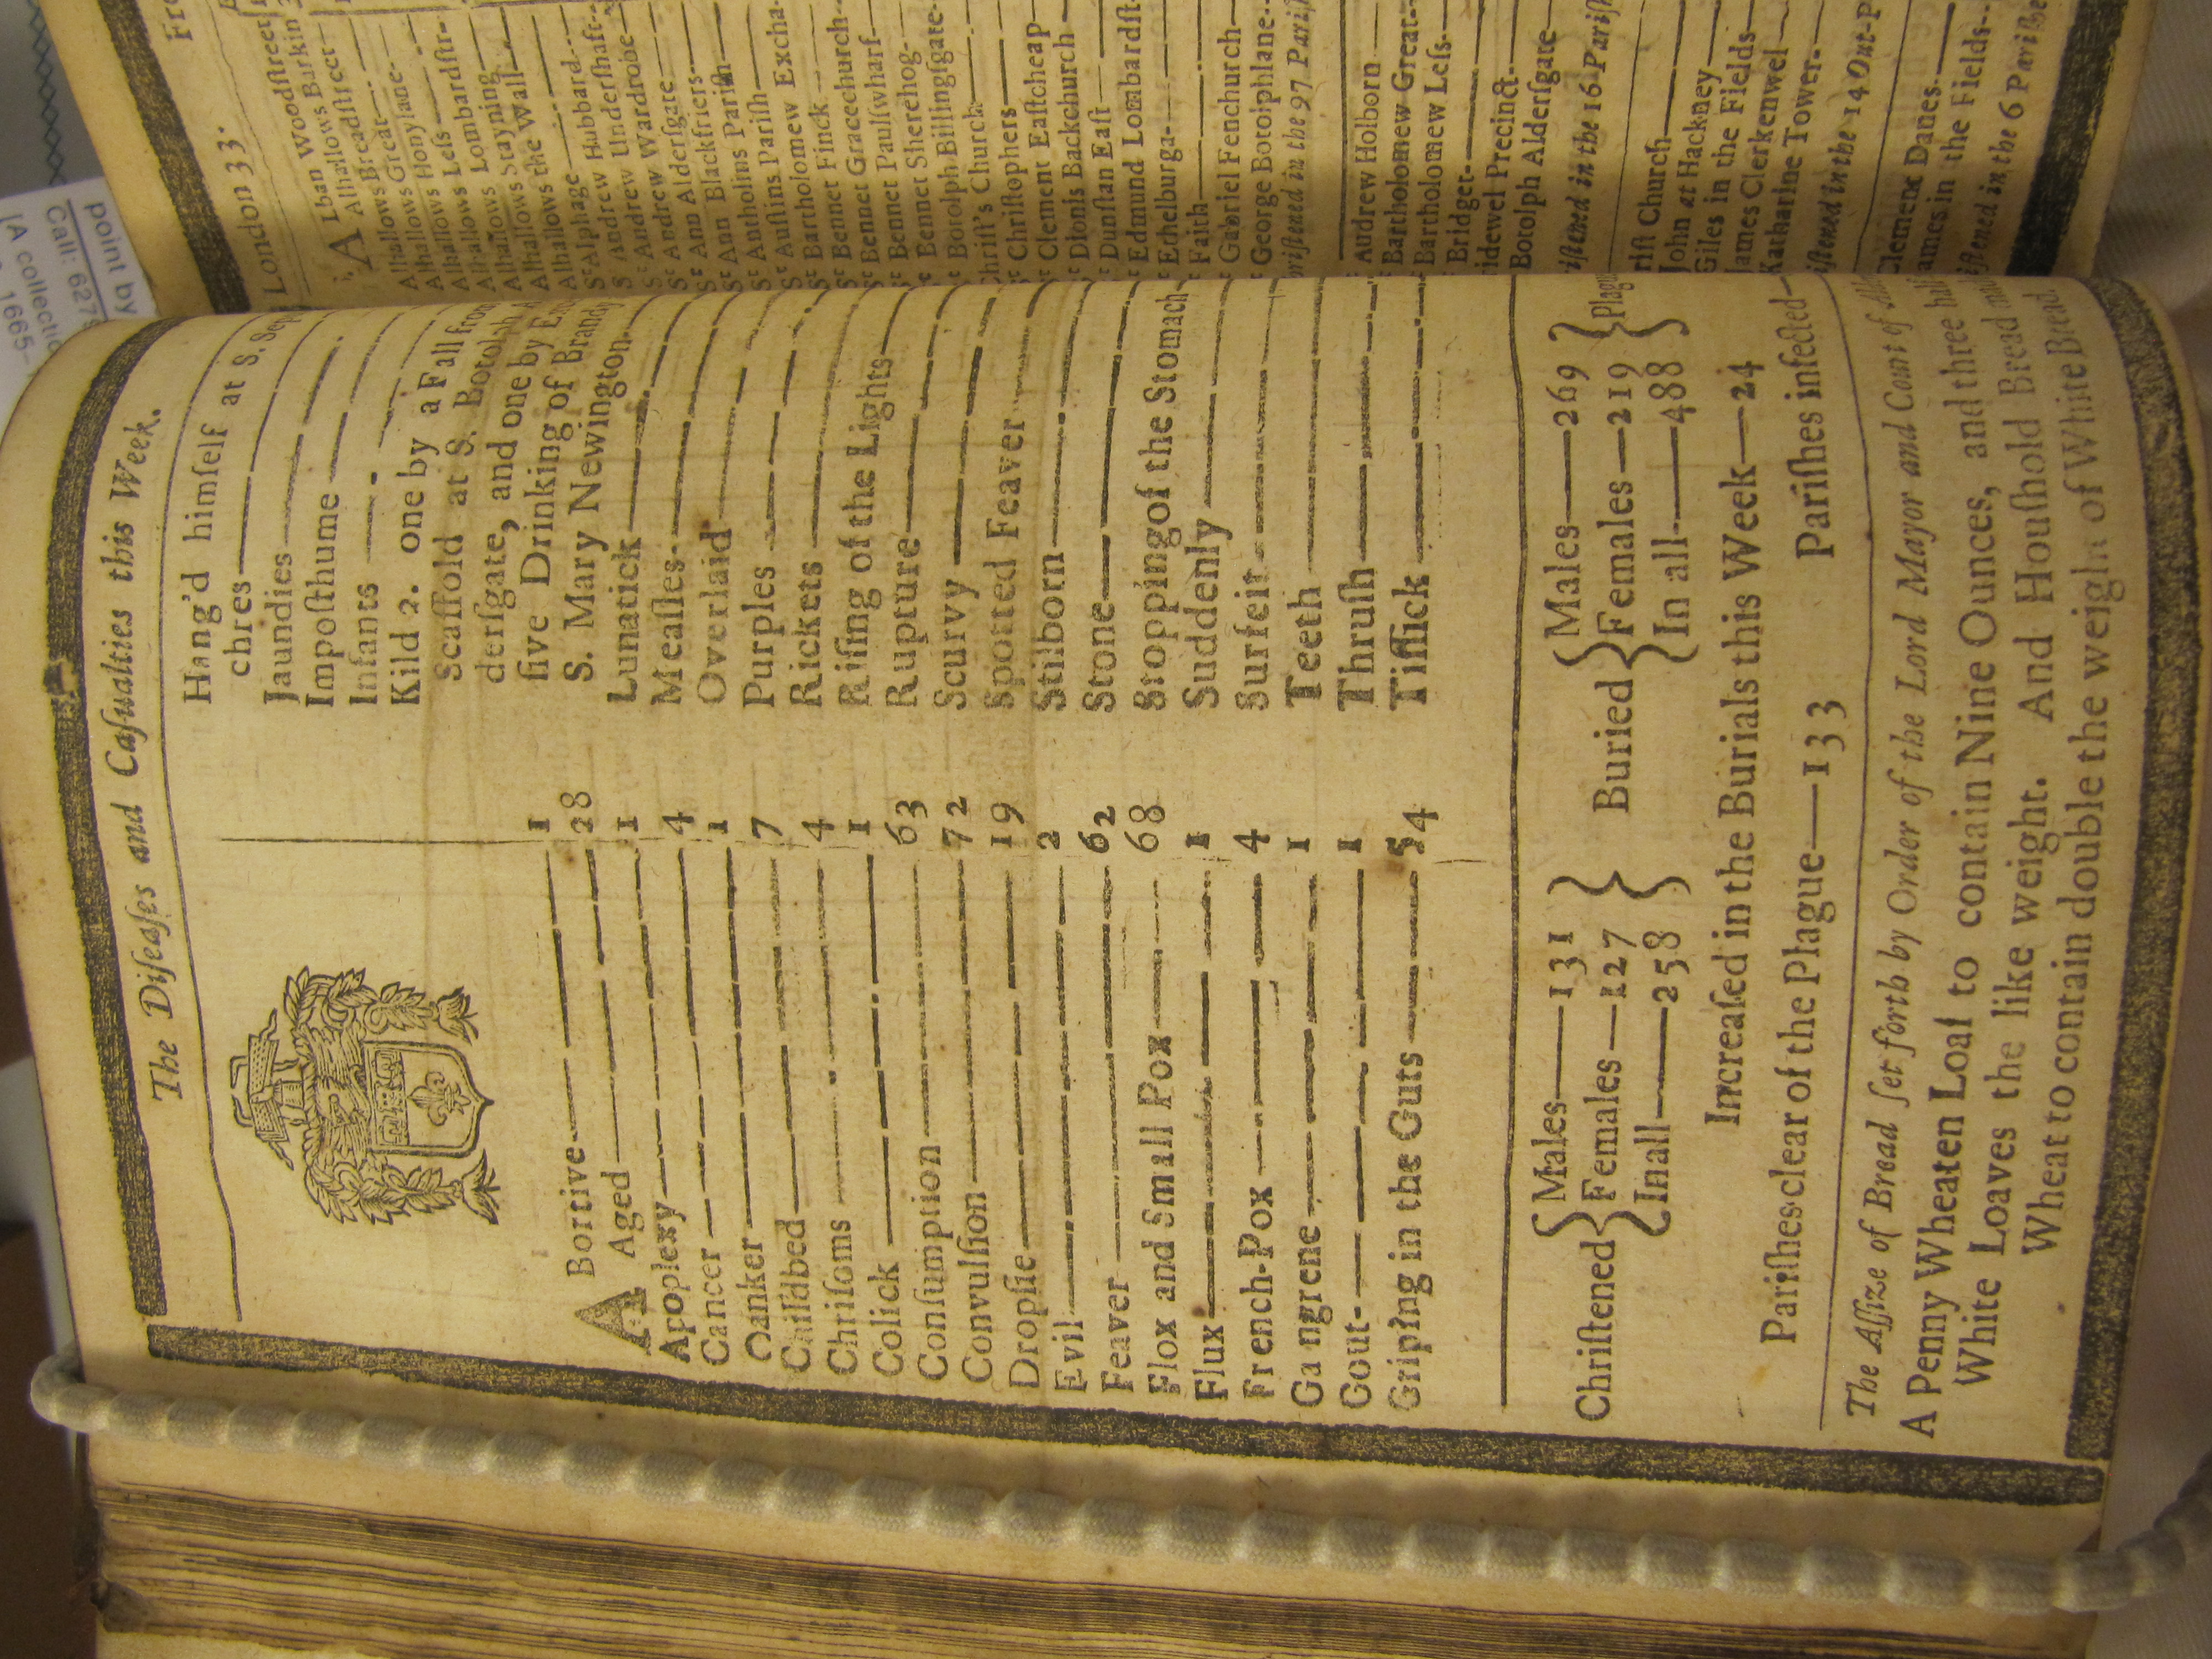 The Diſeaſes and Caſualties this Week.
A Bortive 1
Aged 28
Apoplexy 1
Cancer 4
Canker 1
Childbed 7
Chriſoms 4
Colick 1
Conſumption 63
Convulſion 72
Dropſie 19
Evil 2
Feaver 62
Flox and Small Pox 68
Flux 1
French-Pox 4
Gangrene 1
Gout 1
Griping in the Guts 54
Hang'd himſelf at S.
chres
Jaundies
Impoſthume
Infants
Kild 2. one by a Fall from
Scaffold at S. Botolph
derſgate, and one by
ſive Drinking of Brandy
S. Mary Newington
Lunatick
Meaſles
Overlaid
Purples
Rickets
Riſing of the Lights
Rupture
Scurvy
Spotted Feaver
Stilborn
Stone
Stopping of the Stomach
Suddenly
Surfeit
Teeth
Thruſh
Tiſſick
Chriſtened { Males—131
Females—127
In all—258 }
Buried { Males—269
Females—219
In all—488 } Plague
Increaſed in the Burials this Week—24
Pariſhes clear of the Plague—133 Pariſhes infected
The Aſſize of Bread ſet forth by Order of the Lord Mayor and Court of
A Penny Wheaten Loaf to contain Nine Ounces, and three
White Loaves the like weight. And Houſhold Bread
Wheat to contain double the weight of White Bread.
London 33.
A Lban Woodſtreet
Alhallows Barkin
Alhallows Breadſtreet
Alhallows Great
Alhallows Honylane
Alhallows Leſs
Alhallows Lombardſtr
Alhallows Stayning
Alhallows the Wall
St Alphage
St Andrew Hubbard
St Andrew Underſhaft
St Andrew Wardrobe
St Ann Alderſgate
St Ann Blackfriers
St Antholins Pariſh
St Auſtins Pariſh
St Bartholomew Excha
St Bennet Finck
St Bennet Gracechurch
St Bennet Paulſwharf
St Bennet Sherehog
St Botolph Billingſgate
Chriſt's Church
St Chriſtophers
St Clement Eaſtcheap
St Dionis Backchurch
St Dunſtan Eaſt
St Edmund Lombardſt
St Ethelburga
St Faith
St Gabriel Fenchurch
St George Botolphlane
riſtened in the 97 Pariſ
Audrew Holborn
Bartholomew Great
Bartholomew Leſs
Bridget
idewel Precinct
Botolph Alderſgate
iſtened in the 16 Pariſh
riſt Church
John at Hackney
Giles in the Fields
James Clerkenwel
Katharine Tower
iſtened in the 14 Out-P
Clement Danes
ames in the Fields
iſtened in the 6 Pariſhe
point by
Call: 627
(A collectio
1665-